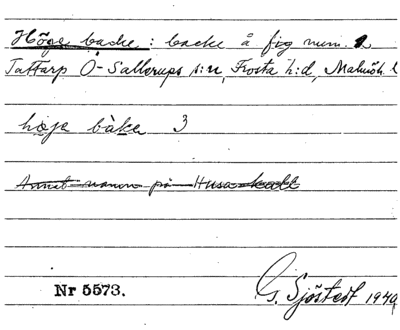 Höge backe : backe å fig num. 2
Tattarp Ö-Sallerups s:n, Frosta h:d, Malmöh. l
høja bàkə 3
Annat namn på Husa-kall
Nr 5573.
G. Sjöstedt 1940